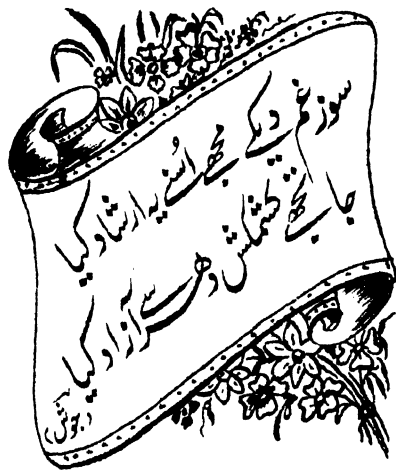 سوز غم دیکے مجھے اُسنے یہ ارشاد کیا
جا تجھے کشمکش دھر سے آزاد کیا
(جوش)